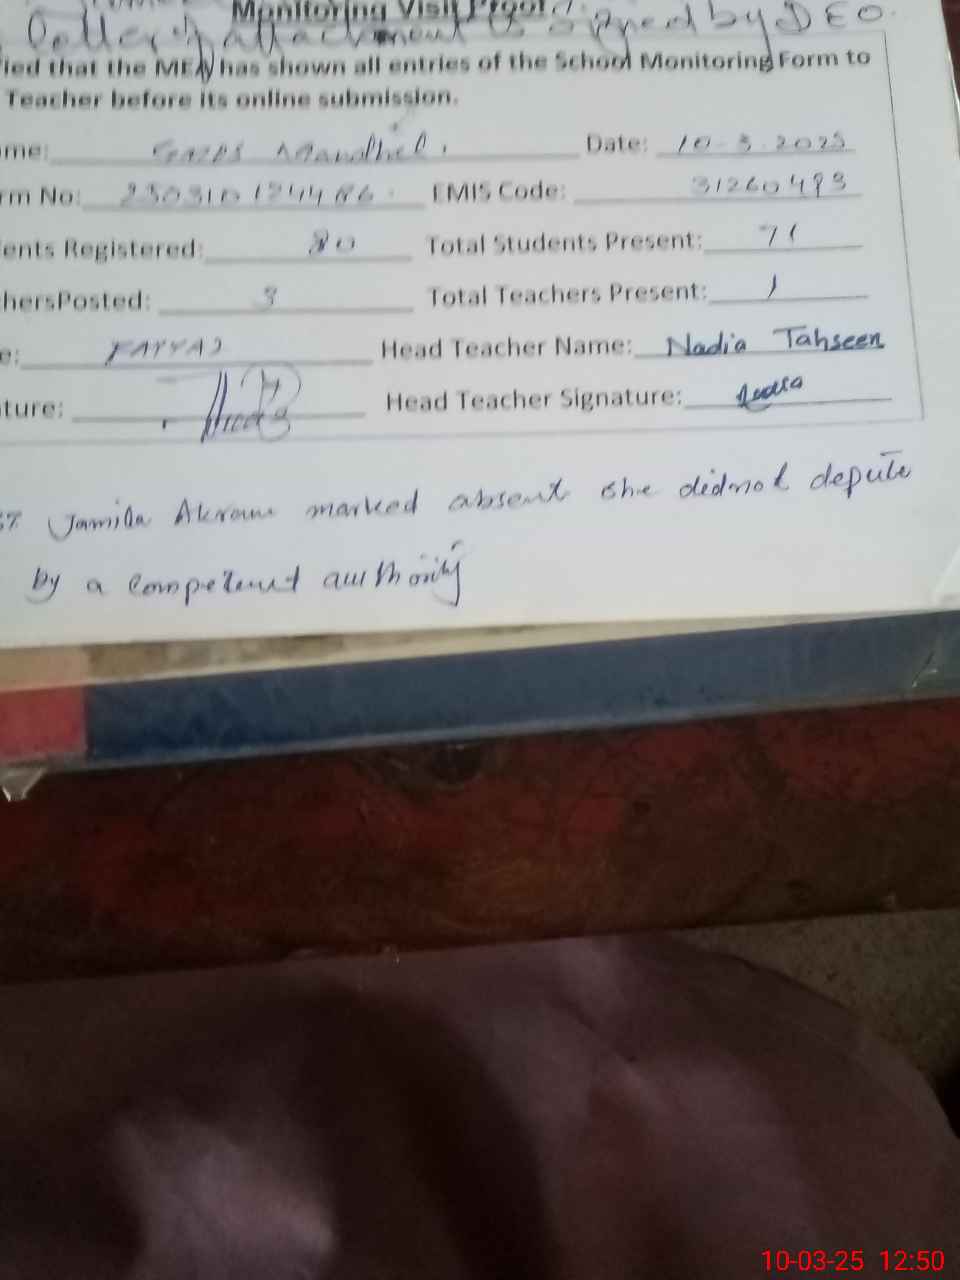 Monitoring Visit Proof
Letter of attachment is signed by DEO.
ied that the MEA has shown all entries of the School Monitoring Form to
Teacher before its online submission.
me: GMPS Date: 10-3-2025
rm No: EMIS Code: 31260493
ents Registered: 80 Total Students Present: 71
hersPosted: 3 Total Teachers Present: 1
e: FAYYAZ Head Teacher Name: Nadia Tahseen
ture: Head Teacher Signature: Nadia
Jamila Akram marked absent she didnot depute
by a competent authority
10-03-25 12:50